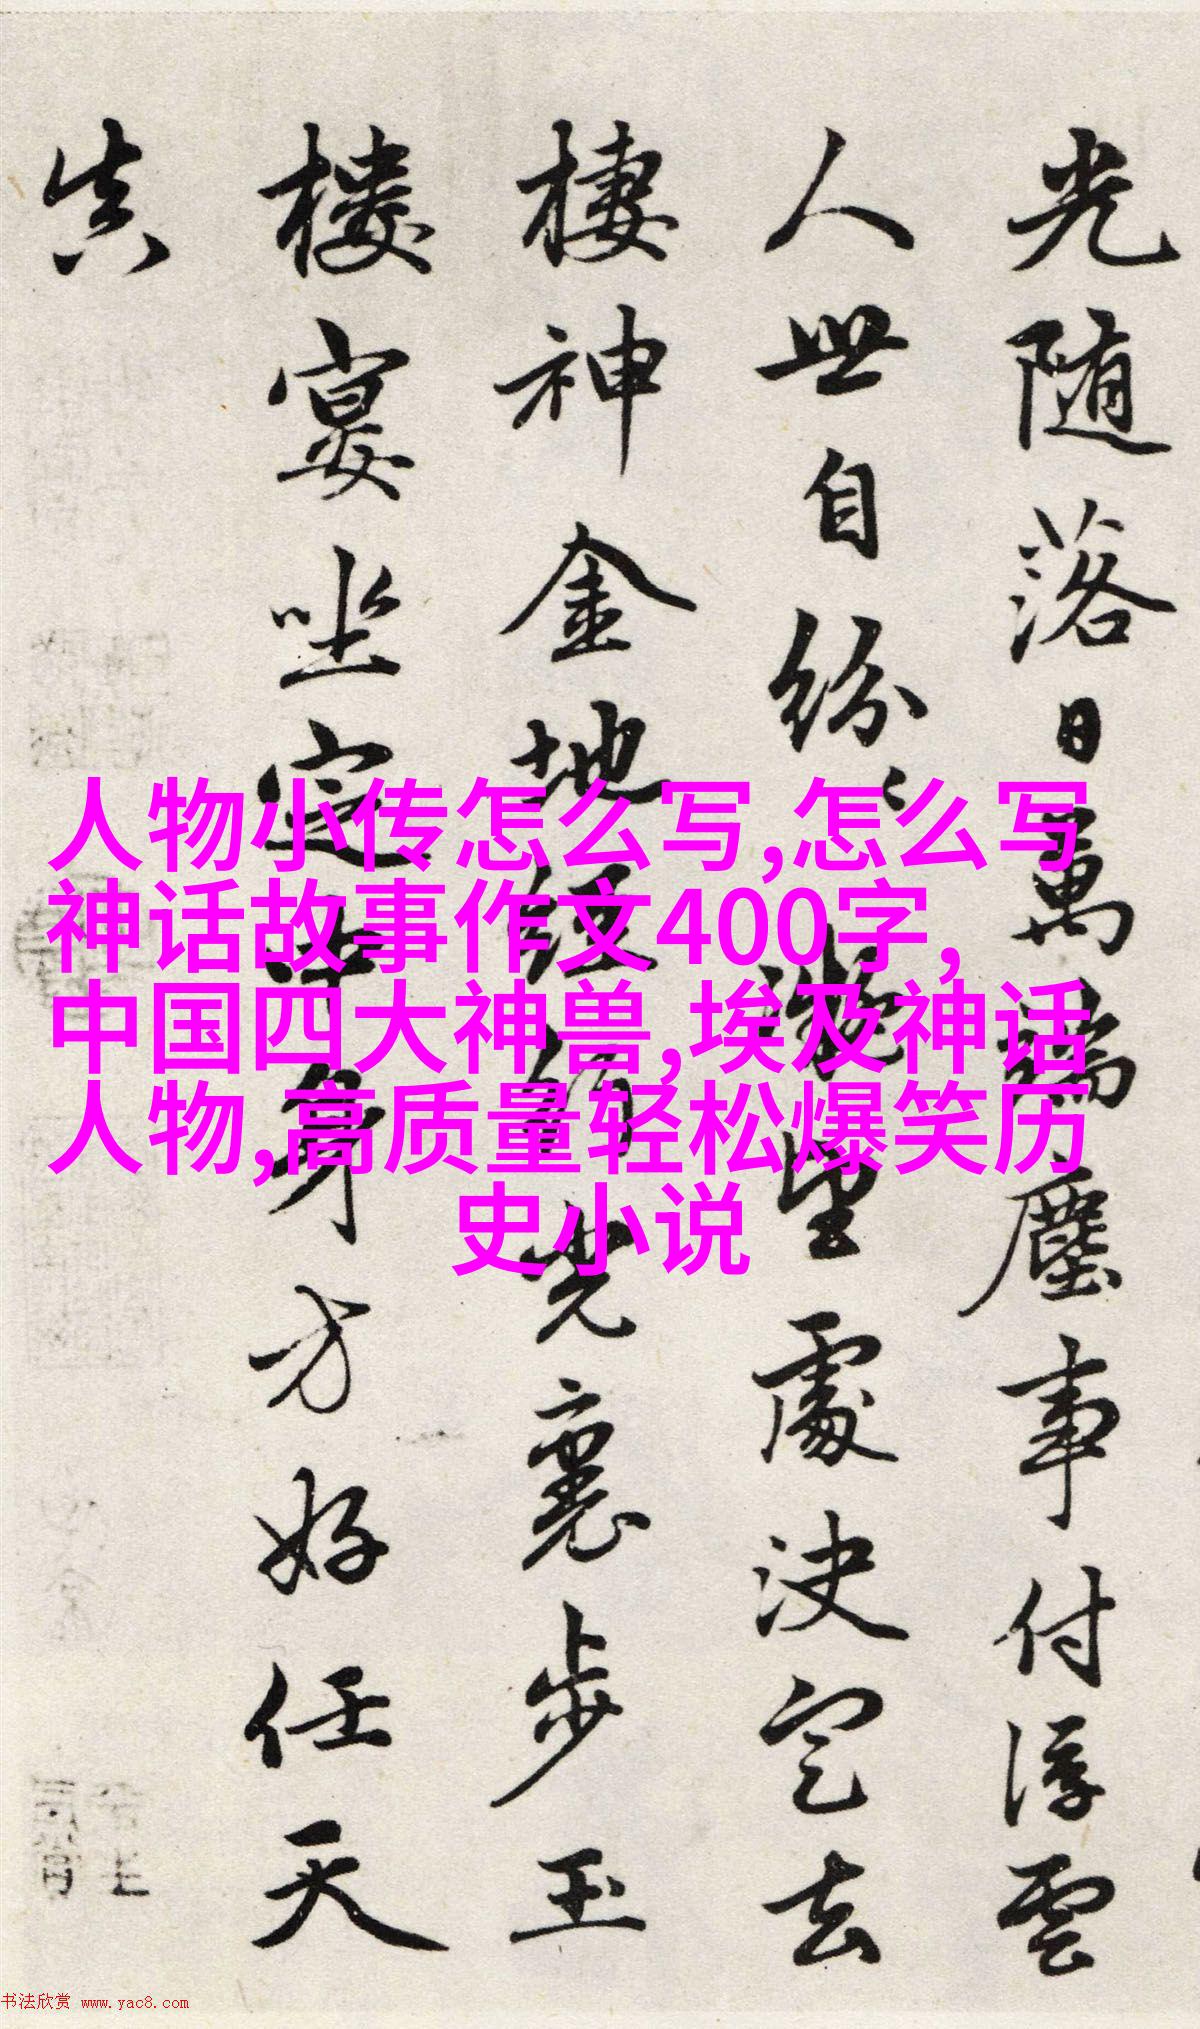 光随落日萬端塵事付浮雲
人世自紛〻凝望處決定去
棲神金地經行光裏步玉
樓宴坐定中身方好任天
真
人物小传怎么写,怎么写
神话故事作文400字,
中国四大神兽,埃及神话
人物,高质量轻松爆笑历
史小说
书法欣赏 www.yac8.com